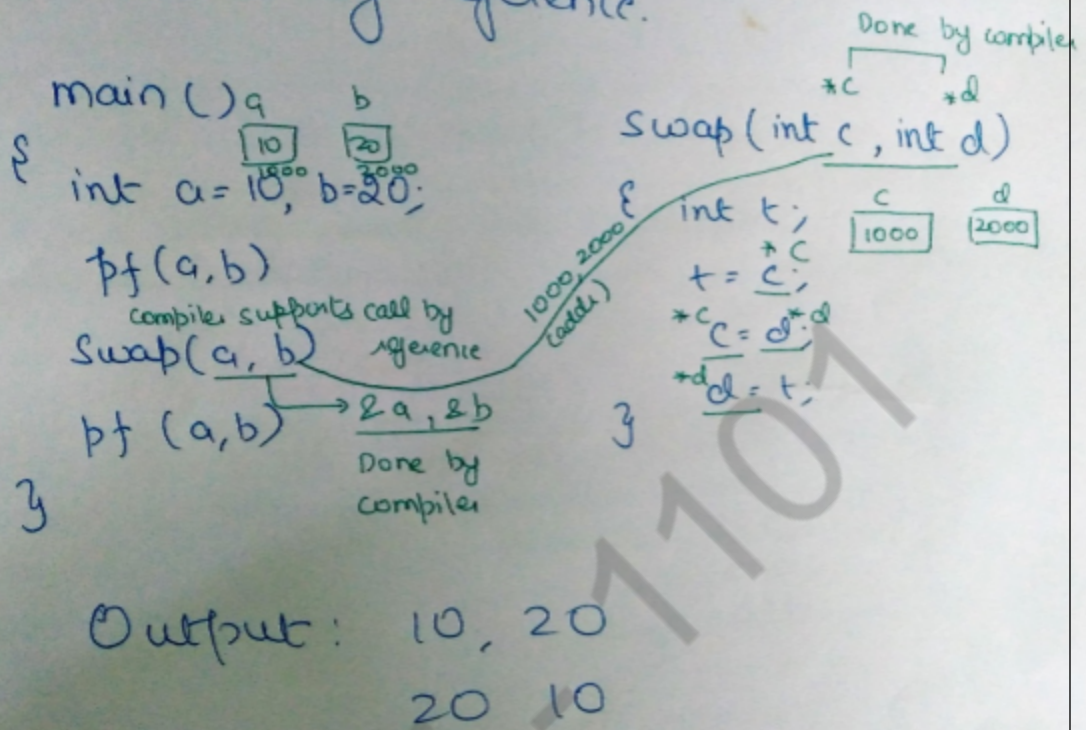 ference.
main()
a b
10 20
1000 2000
{
int a=10, b=20;
pf(a,b)
compiler supports call by
reference
swap(a, b)
&a, &b
Done by
compiler
pf (a,b)
}
1000, 2000
(addr)
Done by compiler
*c *d
swap(int c, int d)
{
int t;
c d
1000 2000
*c
t = c;
*c *d
c = d;
*d
d = t;
}
Output: 10, 20
20 10
1101